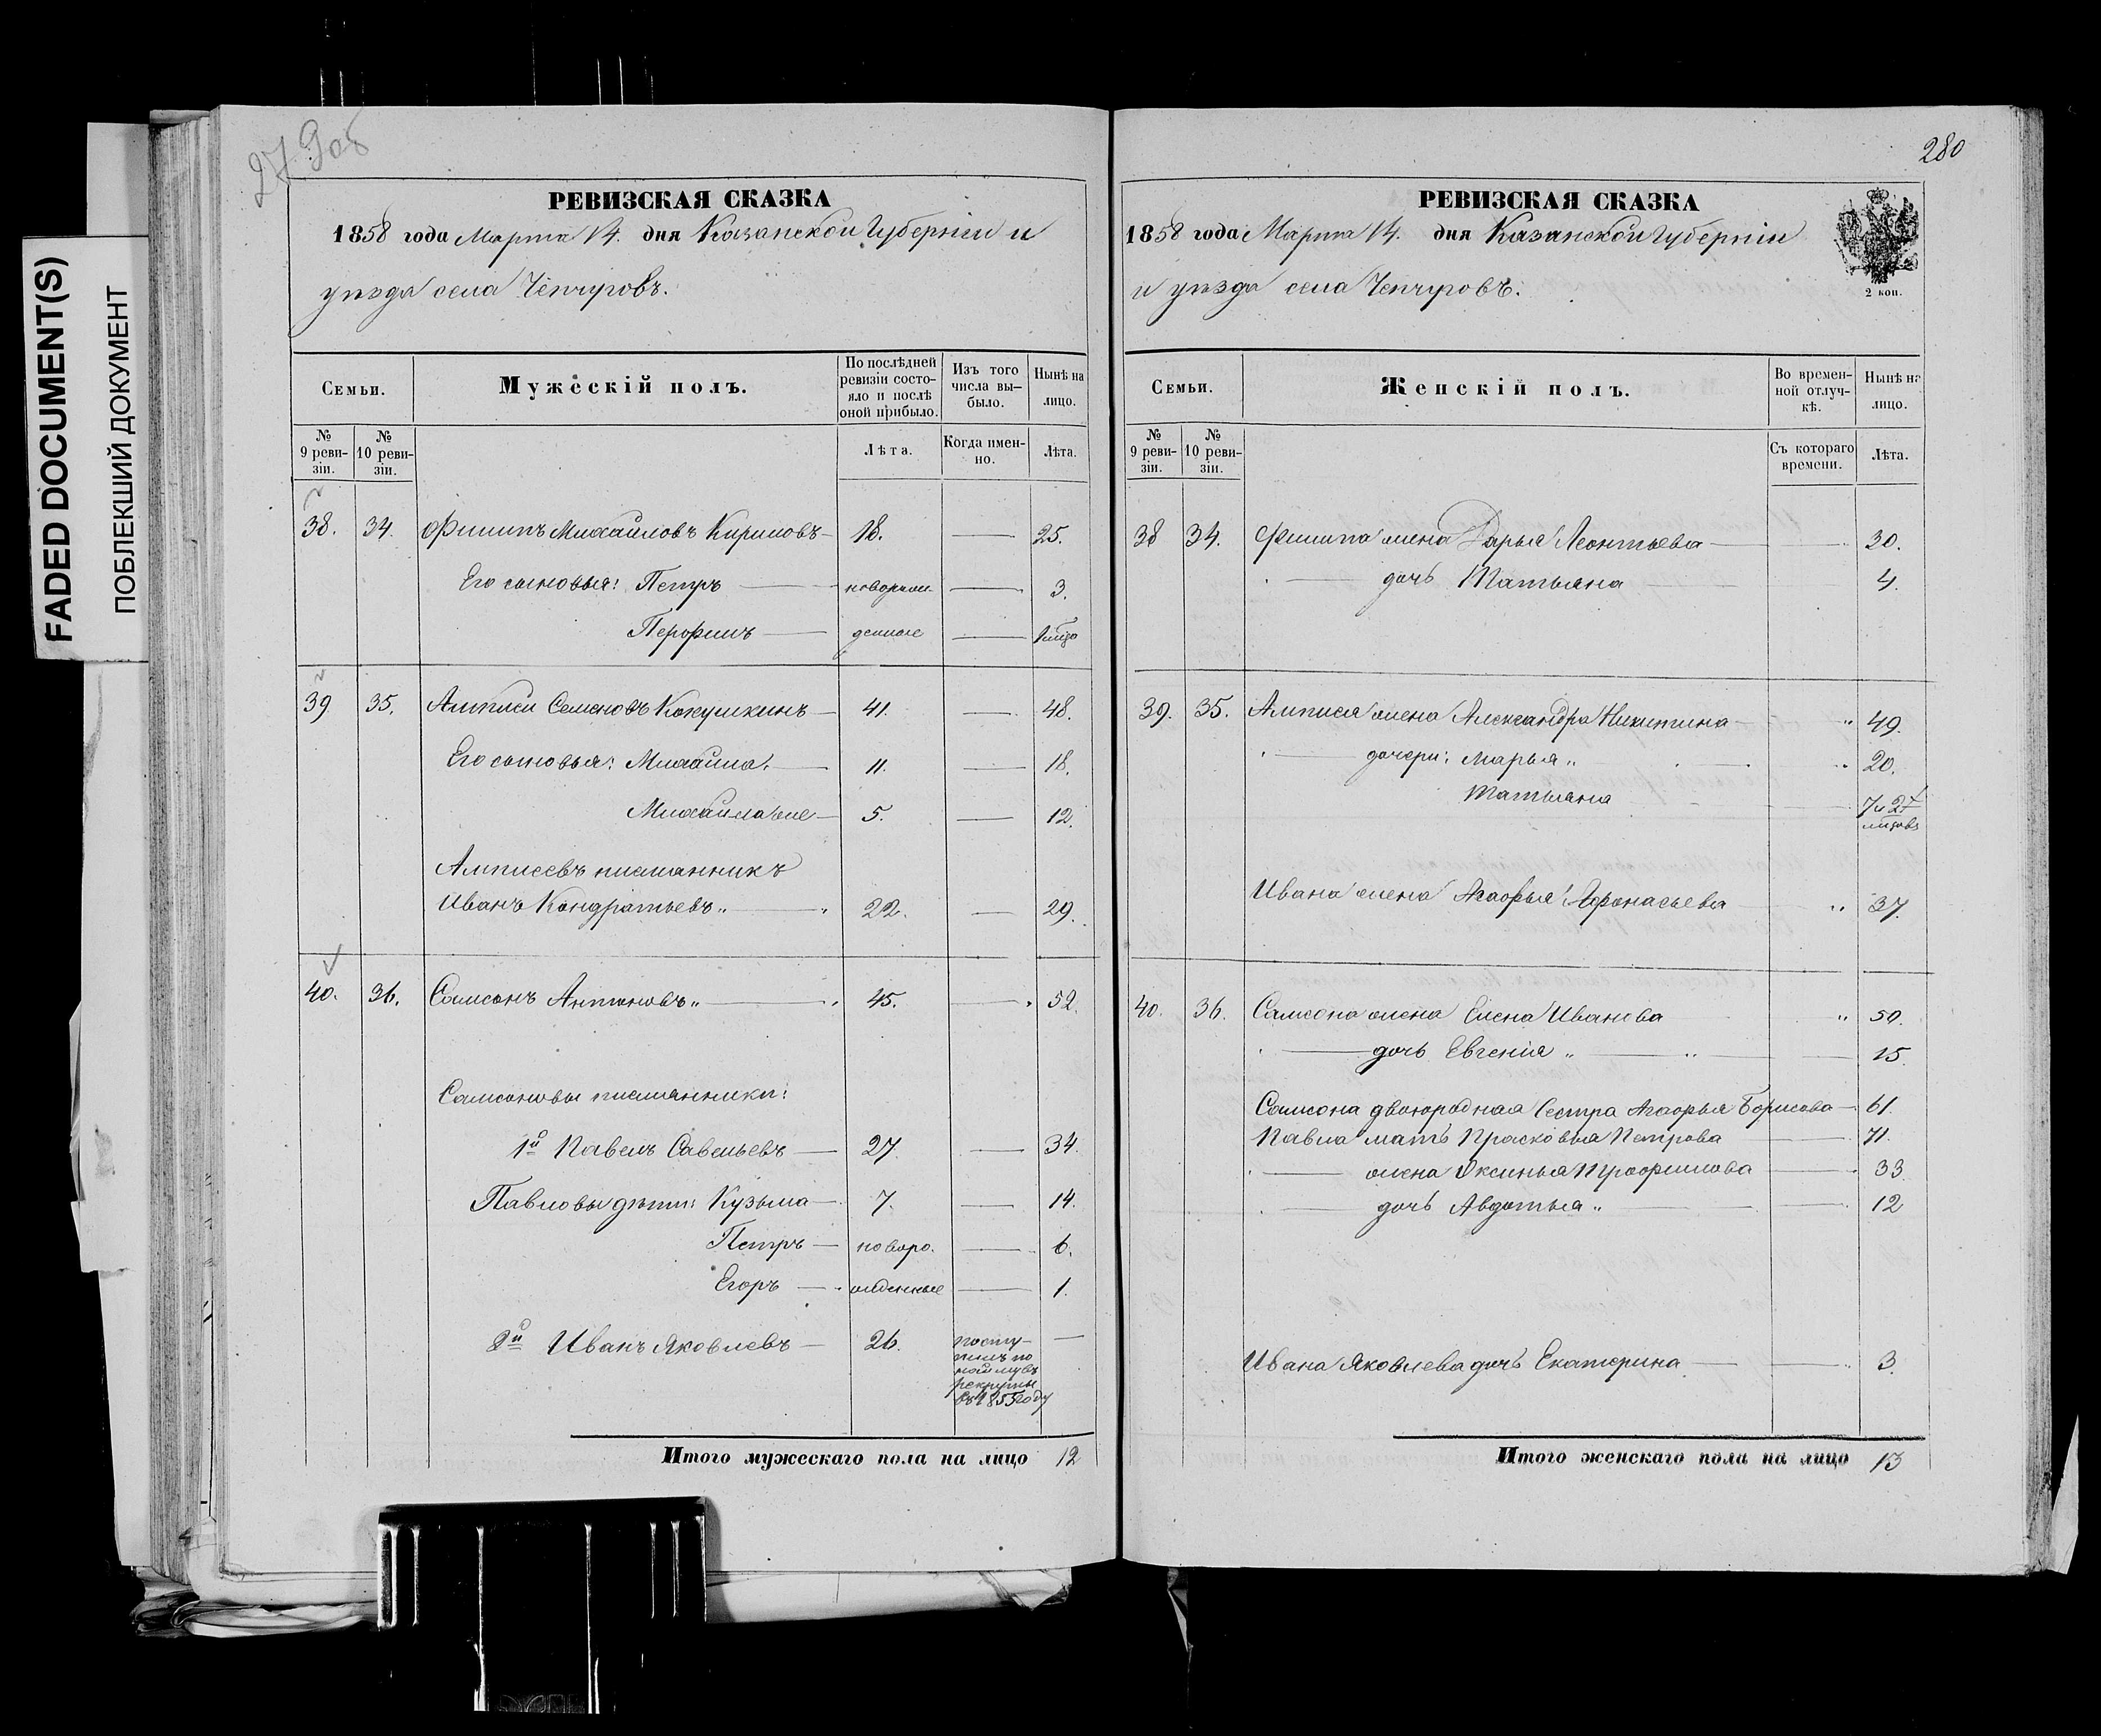 FADED DOCUMENT(S)
ПОБЛЕКШИЙ ДОКУМЕНТ
279 об
РЕВИЗСКАЯ СКАЗКА
1858 года Марта 14. дня Казанской Губернiи и
уѣзда села Чепчуровъ.
Семьи.
Мужескiй полъ.
По послѣдней ревизiи состояло и послѣ оной прибыло.
Изъ того числа выбыло.
Нынѣ на лицо.
№ 9 ревизiи.
№ 10 ревизiи.
Лѣта.
Когда именно.
Лѣта.
38. 34. Филипъ Михайловъ Кириловъ — 18. — 25.
Его сыновья: Петръ — новорож- — 3.
Перфилъ — денные — 1 мѣсо
39 35. Алпиѣй Семеновъ Кокушкинъ — 41. — 48.
Его сыновья: Михайла. — 11. — 18.
Михайла же — 5. — 12.
племянникъ
Иванъ Кондратьевъ„ — 22. — 29.
40. 36. Самсонъ Антоновъ„ — 45. — 52.
Самсоновы племянники:
1й Павелъ Савельевъ — 27. — 34.
Павловы дѣти: Кузьма — 7. — 14.
Петръ — новоро. — 6.
Егоръ — жденные — 1.
2й Иванъ Яковлевъ — 26. посту- —
пилъ по
найму въ
рекруты
въ 1855 году
Итого мужескаго пола на лицо 12
280
РЕВИЗСКАЯ СКАЗКА
1858 года Марта 14. дня Казанской Губернiи
и уѣзда села Чепчуровъ.
2 коп.
Семьи.
Женскiй полъ.
Во временной отлучкѣ.
Нынѣ на лицо.
№ 9 ревизiи.
№ 10 ревизiи.
Съ котораго времени.
Лѣта.
38 34. Филипа жена Дарья Леонтьева — 30.
— дочь Татьяна — 4.
39. 35. жена Александра Никитина — „ 49.
— дочери: Марья„ — „ 20.
Татьяна — 7 и 2
Ивана жена Агафья Афонасьева — „ 37.
40. 36. Самсона жена Елена Иванова „ 50.
— дочь Евгенiя „ — „ — 15.
Самсона двоюродная Сестра Агафья Борисова — 61.
Павла мать Прасковья Петрова — 71.
— жена Оксинья Трофимова — 33
— дочь Авдотья „ — 12
Ивана Яковлева дочь Екатерина — 3.
Итого женскаго пола на лицо 13